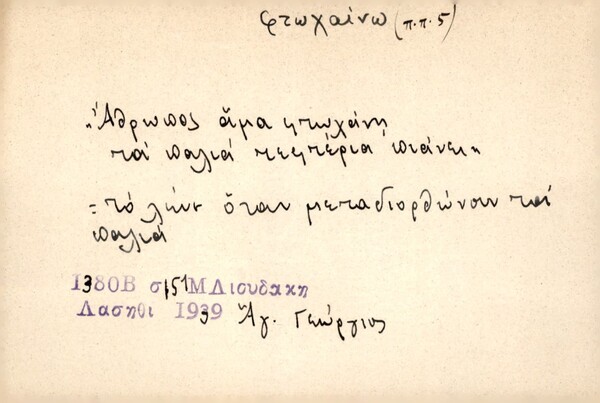 φτωχαίνω (π.π. 5)
"Άθρωπος άμα φτωχάνη
τα παλιά τεφτέρια πιάνει"
= το λένε όταν μεταδιορθώνουν τα
παλιά
1380Β σ. 151 Μ Λιουδακη
Λασηθι 1939 Άγ. Γεώργιος